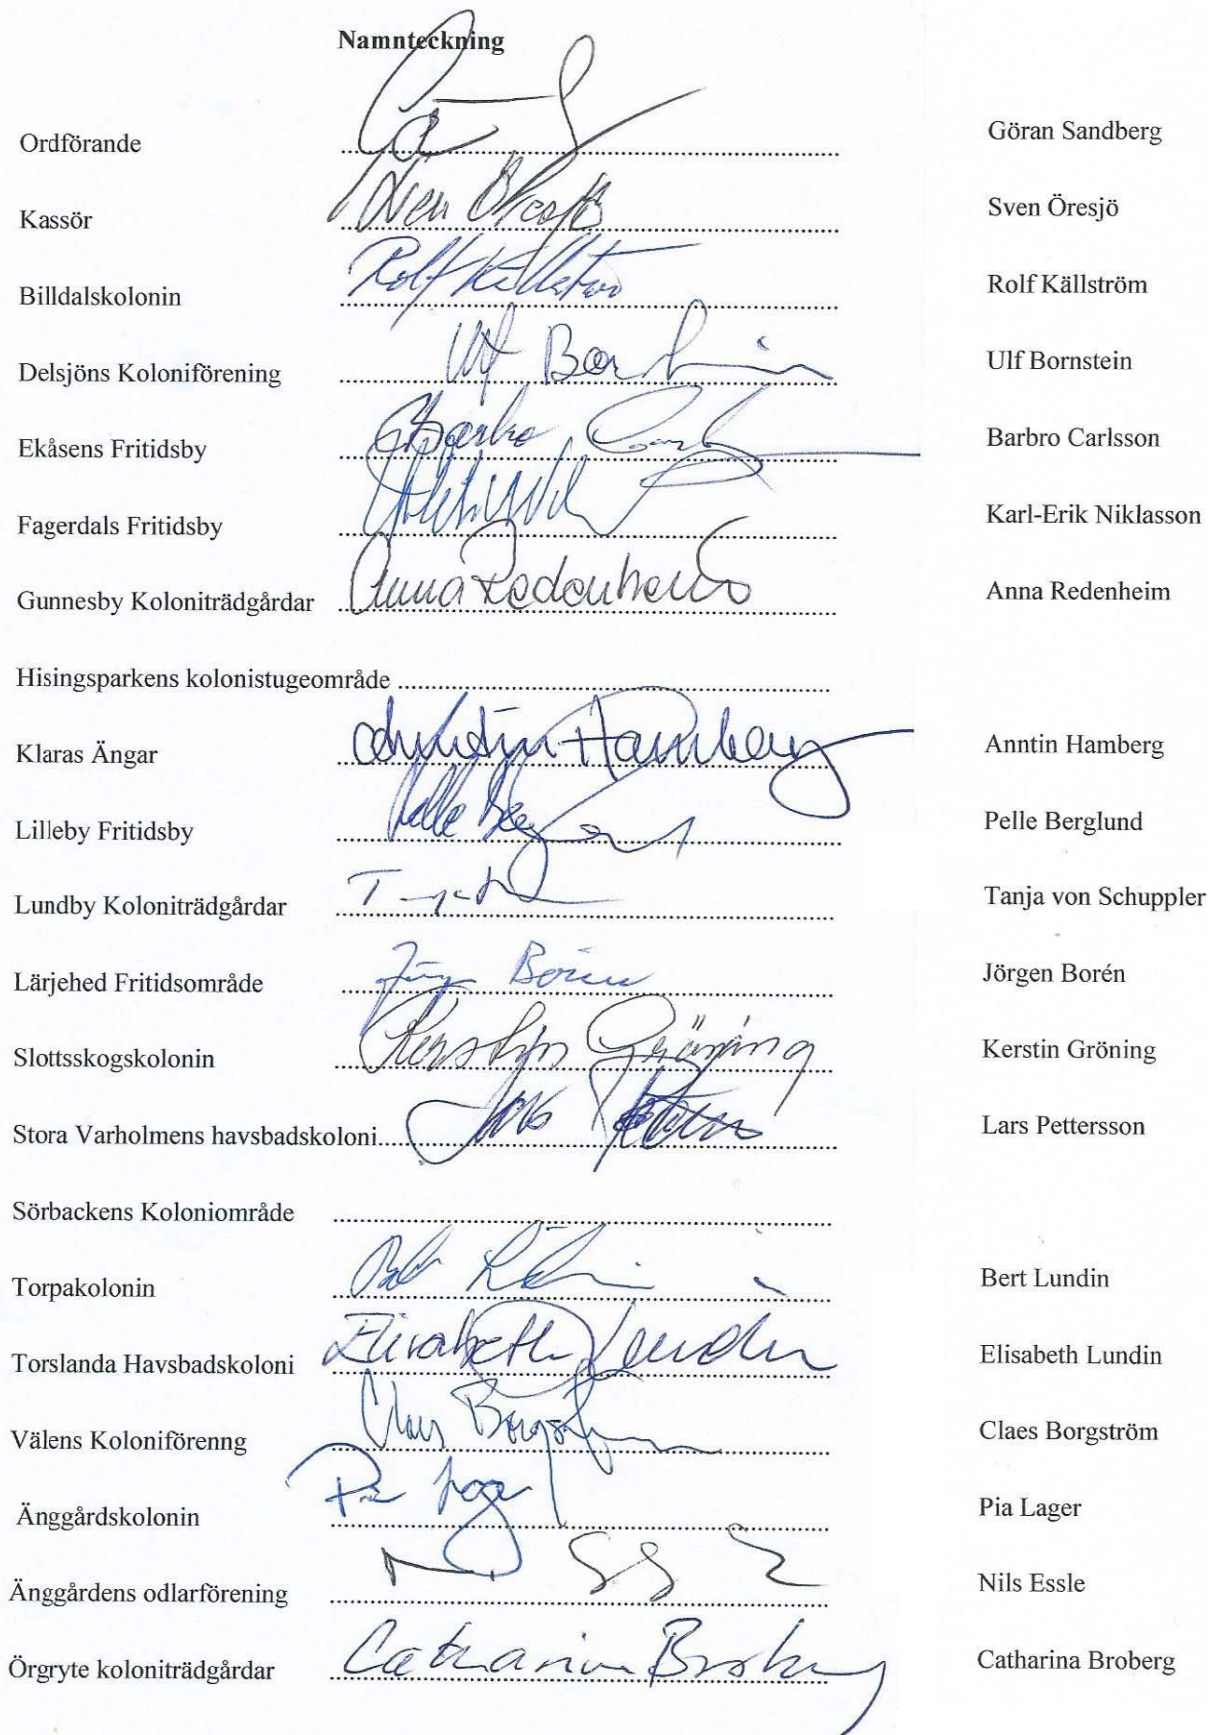 Namnteckning
Ordförande Göran Sandberg
Kassör Sven Öresjö Sven Öresjö
Billdalskolonin Rolf Källström Rolf Källström
Delsjöns Koloniförening Ulf Bornstein
Ekåsens Fritidsby Barbro Barbro Carlsson
Fagerdals Fritidsby Karl-Erik Niklasson
Gunnesby Koloniträdgårdar Anna Redenheim Anna Redenheim
Hisingsparkens kolonistugeområde
Klaras Ängar Anntin Hamberg Anntin Hamberg
Lilleby Fritidsby Pelle Pelle Berglund
Lundby Koloniträdgårdar Tanja von Schuppler
Lärjehed Fritidsområde Borén Jörgen Borén
Slottsskogskolonin Kerstin Gröning Kerstin Gröning
Stora Varholmens havsbadskoloni Lars Lars Pettersson
Sörbackens Koloniområde
Torpakolonin Bert Lundin
Torslanda Havsbadskoloni Elisabeth Lundin Elisabeth Lundin
Välens Koloniförenng Claes Borgström Claes Borgström
Änggårdskolonin Pia Lager Pia Lager
Änggårdens odlarförening Nils Essle
Örgryte koloniträdgårdar Catharina Broberg Catharina Broberg